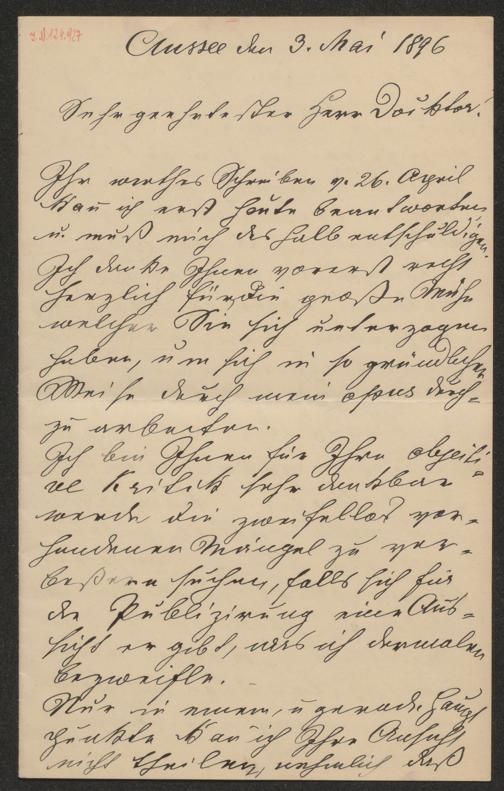 I.N. 124.927
Aussee den 3. Mai 1896
Sehr geehrtester Herr Docktor!
Ihr werthes Schreiben v. 26. April
kañ ich erst heute beantworten
u. muß mich deshalb entschuldigen.
Ich danke Ihnen vorerst recht
herzlich für die große Mühe
welcher Sie sich unterzogen
haben, um sich in so gründlicher
Weise durch mein opus durch-
zu arbeiten.
Ich bin Ihnen für Ihre objekti-
ve Kritik sehr dankbar
werde die zweifellos vor-
handenen Mängel zu ver-
beßern suchen, falls sich für
die Publizirung eine Aus-
sicht ergibt, was ich dermalen
bezweifle.
Nur in einem, u gerade Haupt
punkte kañ ich Ihre Ansicht
nicht theilen, nehmlich daß